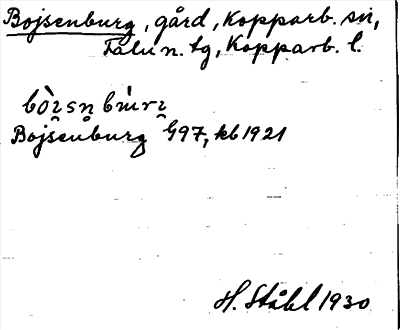 Bojsenburg, gård, Kopparb. sn,
Falu n. tg, Kopparb. l.
Bojsenburg G97, kb 1921
H. Ståhl 1930